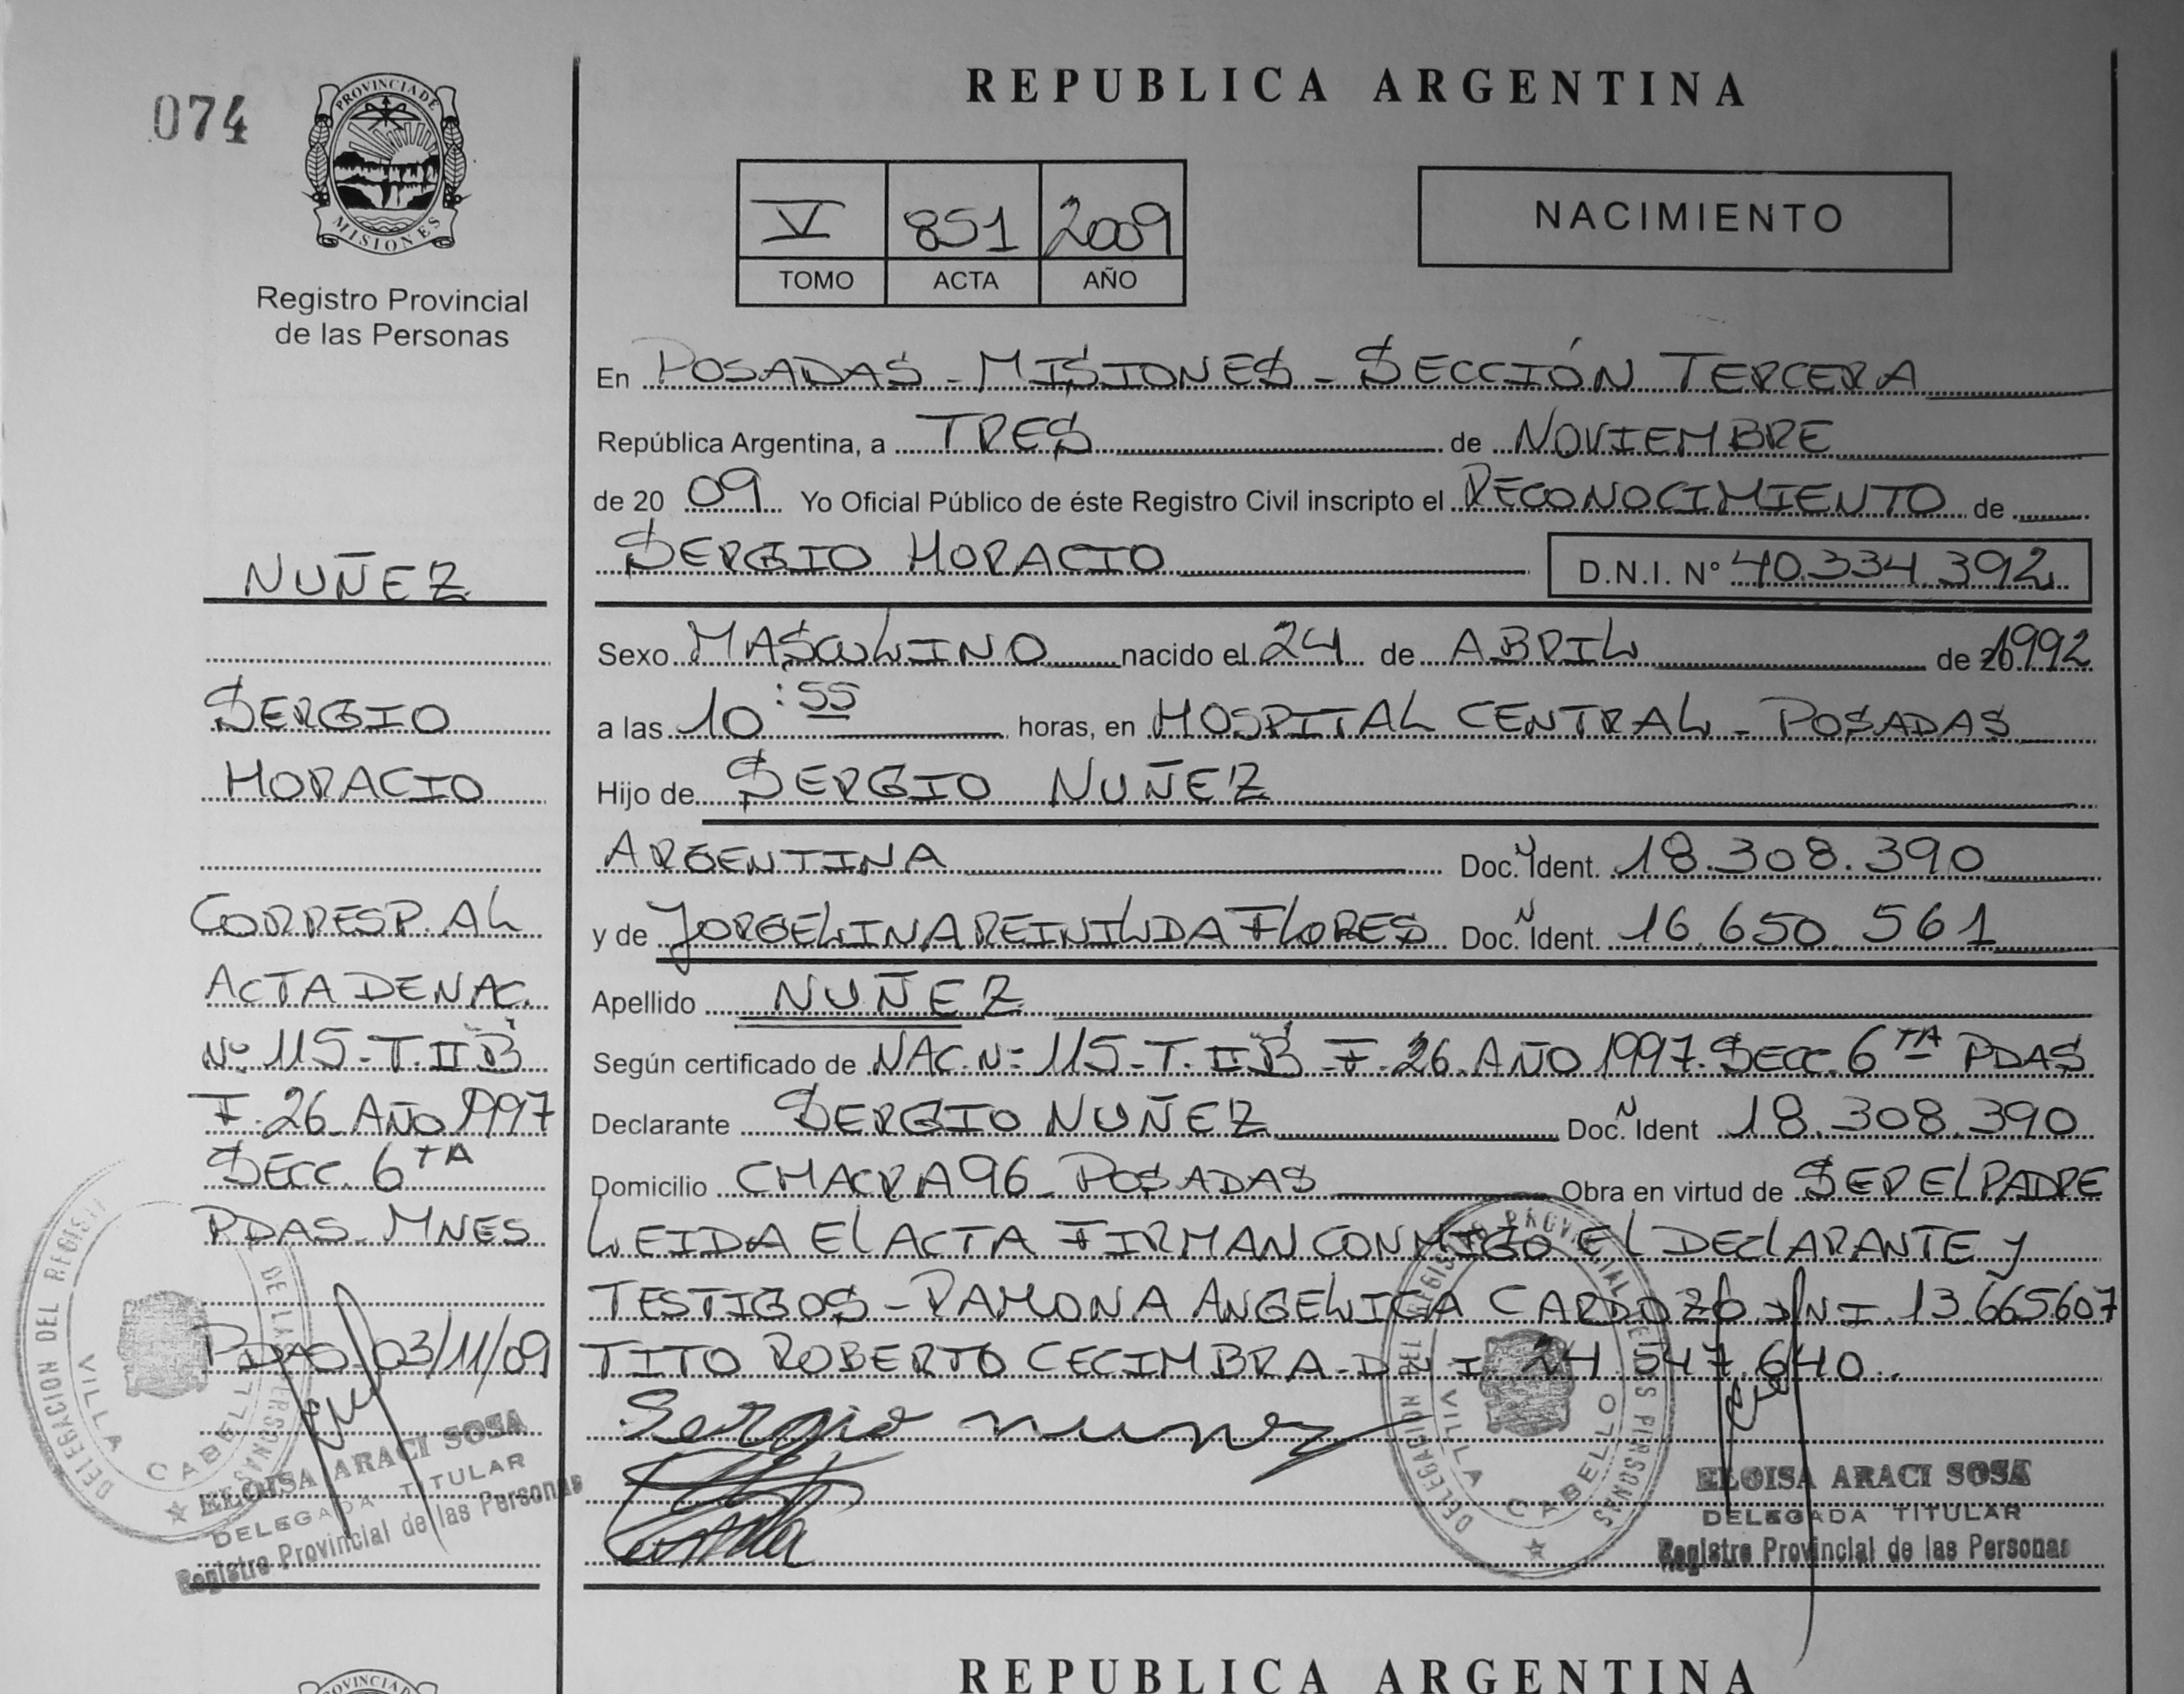 074
PROVINCIA DE
MISIONES
Registro Provincial
de las Personas
NUÑEZ
SERGIO
HORACIO
CORRESP. AL
ACTA DE NAC.
Nº 115 - T. II B
F. 26 AÑO 1997
SECC. 6TA
PDAS. MNES
PDAS 03/11/09
DELEGACION DEL REGIST
DE LAS PERSONAS
VILLA CABELL
ELOISA ARACI SOSA
DELEGADA TITULAR
Registro Provincial de las Personas
REPUBLICA ARGENTINA
V 851 2009
TOMO ACTA AÑO
NACIMIENTO
En POSADAS - MISIONES - SECCIÓN TERCERA
República Argentina, a TRES de NOVIEMBRE
de 20 09 Yo Oficial Público de éste Registro Civil inscripto el RECONOCIMIENTO de
SERGIO HORACIO D.N.I. Nº 40.334.392
Sexo MASCULINO nacido el 24 de ABRIL de 1992
a las 10:55 horas, en HOSPITAL CENTRAL - POSADAS
Hijo de SERGIO NUÑEZ
ARGENTINA Doc. N Ident. 18.308.390
y de JORGELINA REINILDA FLORES Doc. N Ident. 16.650.561
Apellido NUÑEZ
Según certificado de NAC. Nº 115 - T. II B - F. 26. AÑO 1997. SECC. 6TA PDAS
Declarante SERGIO NUÑEZ Doc. N Ident 18.308.390
Domicilio CHACRA 96 - POSADAS Obra en virtud de SER EL PADRE
LEIDA EL ACTA FIRMAN CONMIGO EL DECLARANTE Y
TESTIGOS - RAMONA ANGELICA CARDOZO D.N.I. 13.665607
TITO ROBERTO CECIMBRA - D.N.I. 24.547.640.
Sergio nunez
DELEGACION DEL REGISTRO PROVINCIAL DE LAS PERSONAS
VILLA CABELLO
ELOISA ARACI SOSA
DELEGADA TITULAR
Registro Provincial de las Personas
PROVINCIA D
REPUBLICA ARGENTINA